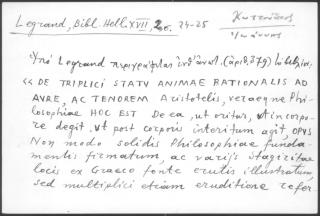 Legrand, Bibl. Hell. XVII, 2σ. 24-25
Κωττούνιος
Ἰωάννης
Ὑπὸ Legrand περιγράφεται
« DE TRIPLICI STATV ANIMAE RATIONALIS AD
AVRE, AC TENOREM Aristotelis, veraeque Phi-
losophiae HOC EST De ea, ut oritur, ut in corpo-
re degit, ut post corporis interitum agit, OPVS
Non modo solidis Philosophiae funda-
mentis firmatum, ac varijs stagiritae
locis ex Graeco fonte erutis illustratum,
sed multiplici etiam eruditione refer